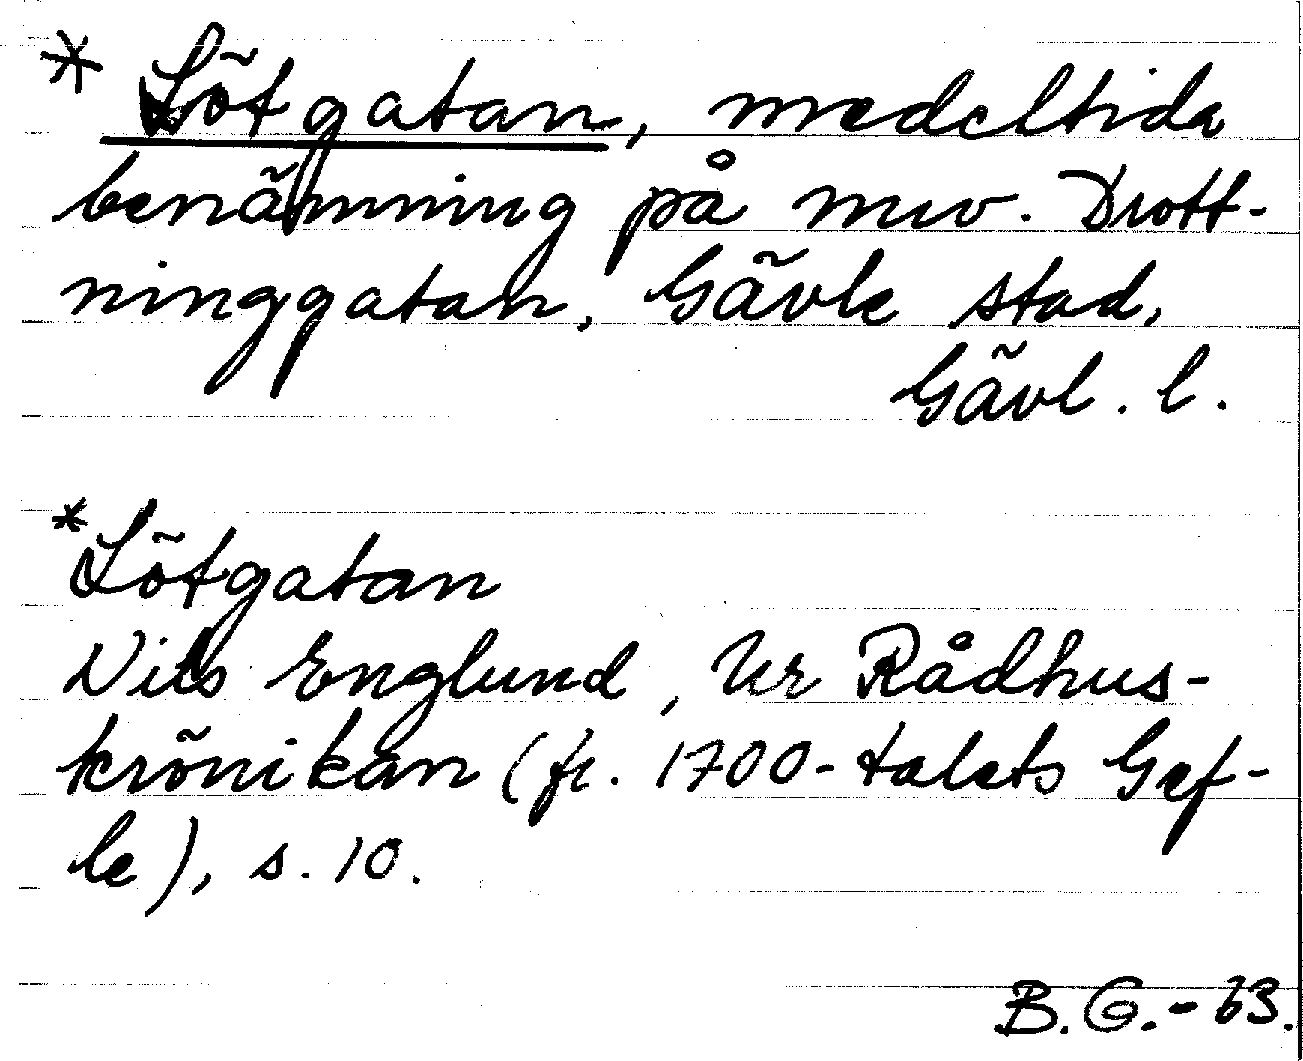 * Lötgatan, medeltida
benämning på nuv. Drott-
ninggatan, Gävle stad,
Gävl. l.
* Lötgatan
Nils Englund, Ur Rådhus-
krönikan (fr. 1700-talets Gef-
le), s. 10.
B. G. - 63.